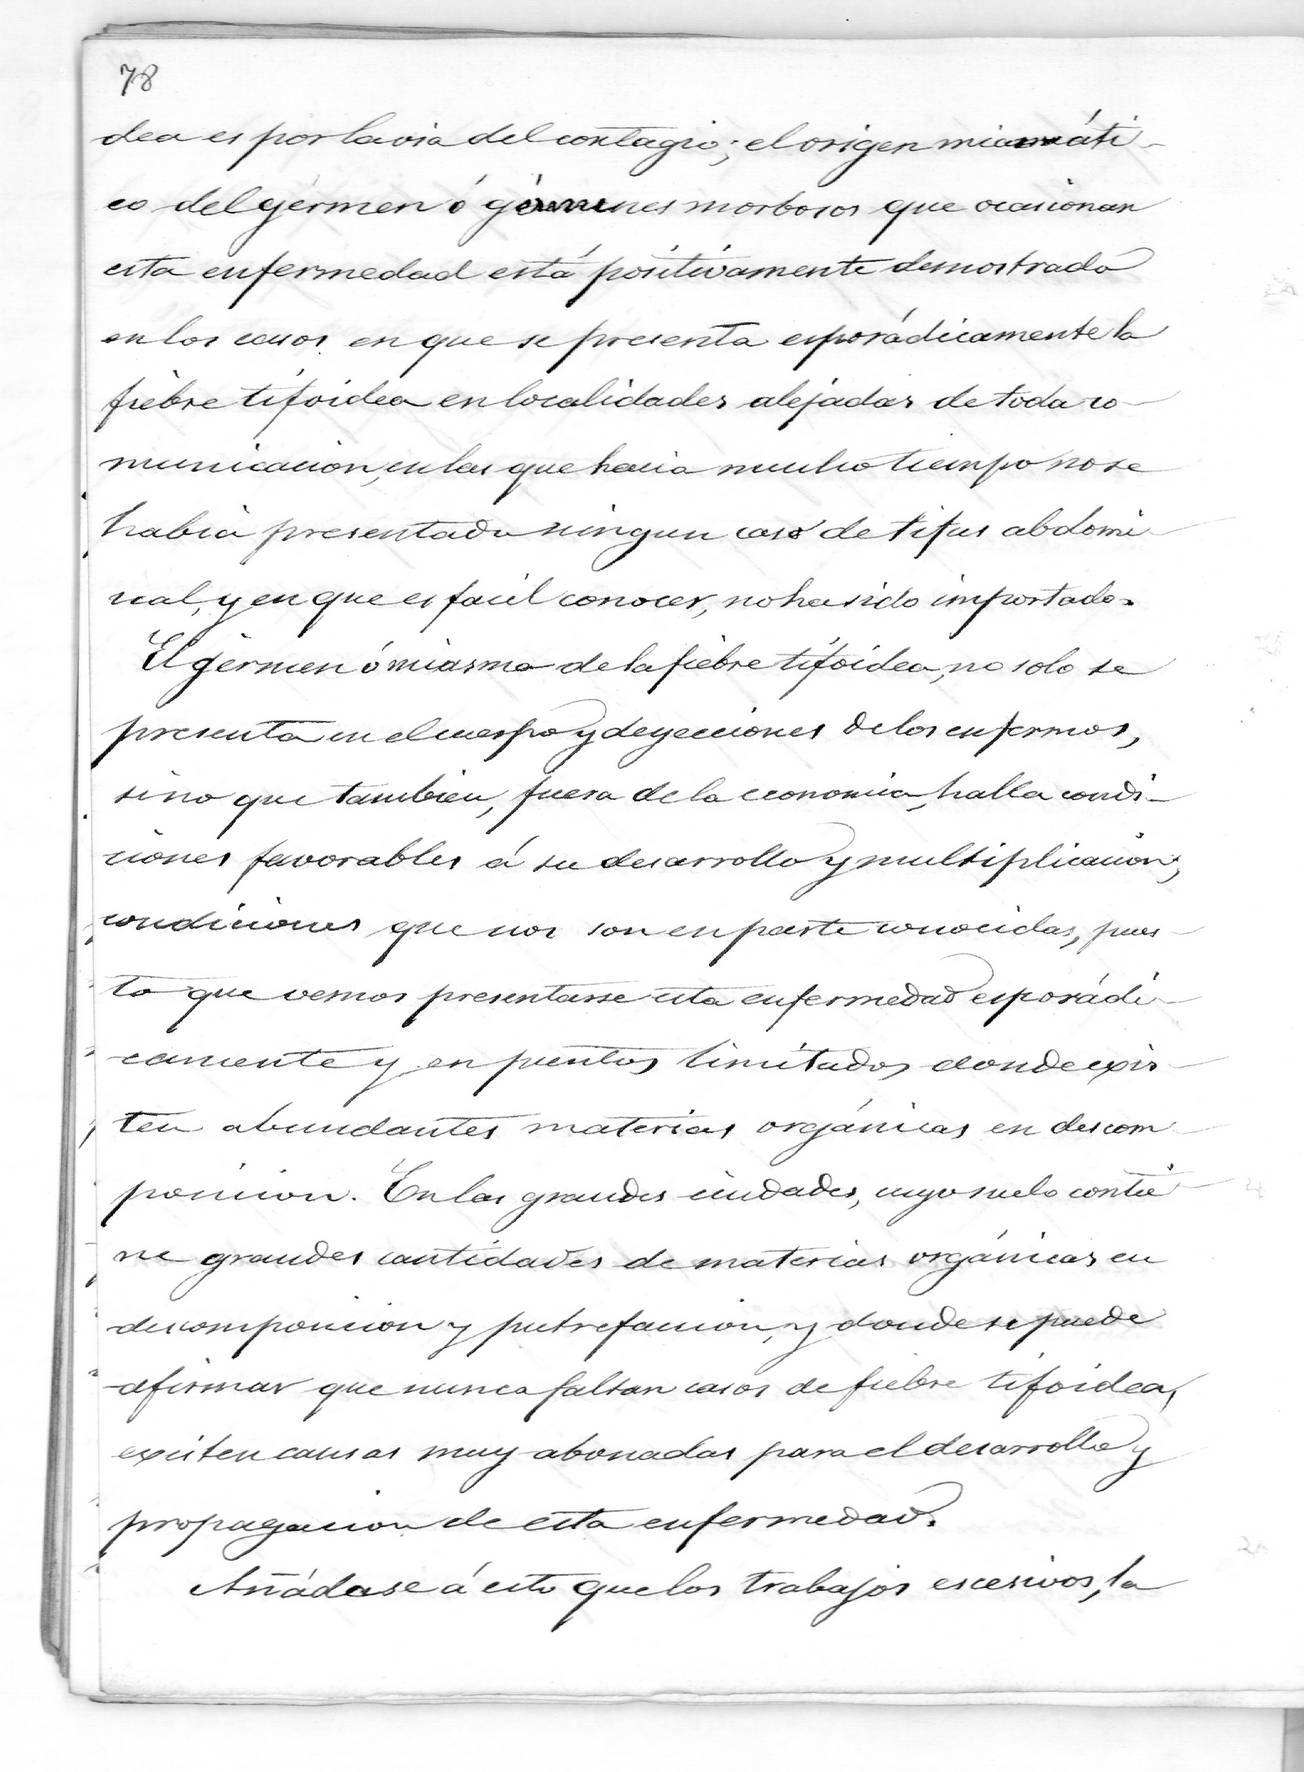 78
dea es por la via del contagio; el origen miasmáti-
co del gérmen ó gérmenes morbosos que ocasionan
esta enfermedad está positivamente demostrado
en los casos en que se presenta esporádicamente la
fiebre tifoidea en localidades alejadas de toda co-
municacion, en las que hacia mucho tiempo no se
habia presentado ningun caso de tifus abdomi-
nal, y en que es facil conocer, no ha sido importado.
El gérmen ó miasma de la fiebre tifoidea, no solo se
presenta en el cuerpo y deyecciones de los enfermos,
sino que tambien, fuera de la economia, halla condi-
ciones favorables á su desarrollo y multiplicacion;
condiciones que nos son en parte conocidas, pues-
to que vemos presentarse esta enfermedad esporádi-
camente y en puntos limitados donde exis-
ten abundantes materias orgánicas en descom-
posicion. En las grandes ciudades, cuyo suelo contie-
ne grandes cantidades de materias orgánicas en
descomposicion y putrefaccion, y donde se puede
afirmar que nunca faltan casos de fiebre tifoidea,
existen causas muy abonadas para el desarrollo y
propagacion de esta enfermedad.
Añádase á esto que los trabajos escesivos, la